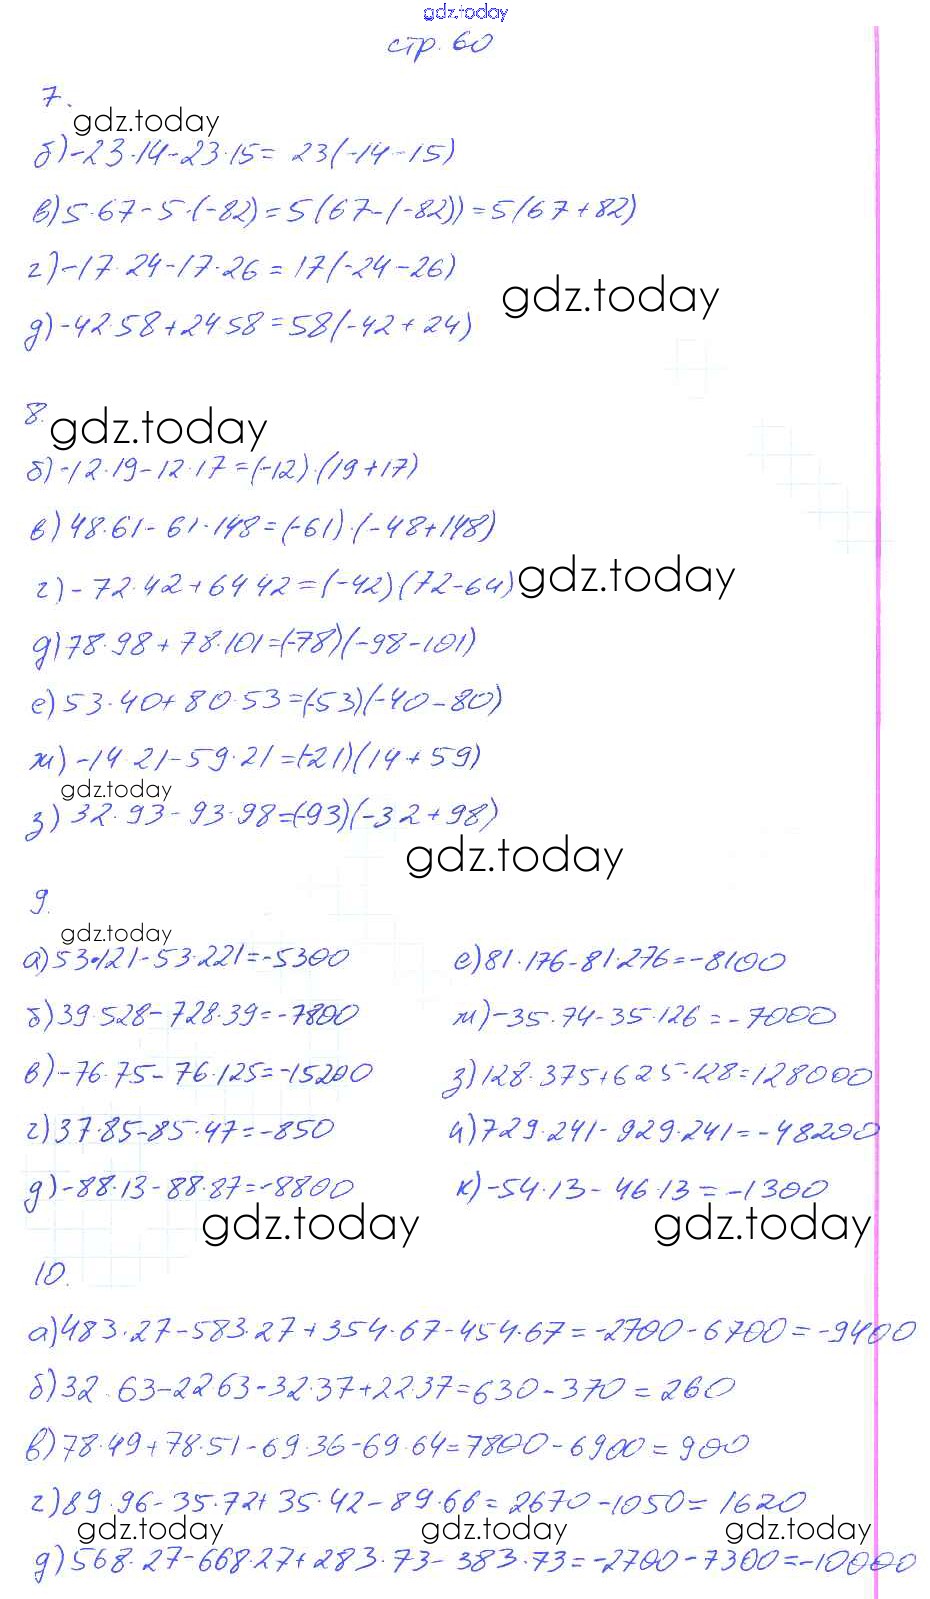 gdz.today
стр. 60
7.
gdz.today
б) -23·14-23·15= 23(-14-15)
в) 5·67-5·(-82)=5(67-(-82))=5(67+82)
г) -17·24-17·26=17(-24-26)
gdz.today
д) -42·58+24·58=58(-42+24)
8.
gdz.today
б) -12·19-12·17=(-12)·(19+17)
в) 48·61-61·148=(-61)·(-48+148)
г) -72·42+64·42=(-42)(72-64)
gdz.today
д) 78·98+78·101=(-78)(-98-101)
е) 53·40+80·53=(-53)(-40-80)
ж) -14·21-59·21=(-21)(14+59)
gdz.today
з) 32·93-93·98=(-93)(-32+98)
gdz.today
9.
gdz.today
а) 53·121-53·221=-5300
б) 39·528-728·39=-7800
в) -76·75-76·125=-15200
г) 37·85-85·47=-850
д) -88·13-88·87=-8800
gdz.today
е) 81·176-81·276=-8100
ж) -35·74-35·126=-7000
з) 128·375+625·128=128000
и) 729·241-929·241=-48200
к) -54·13-46·13=-1300
gdz.today
10.
а) 483·27-583·27+354·67-454·67=-2700-6700=-9400
б) 32·63-22·63-32·37+22·37=630-370=260
в) 78·49+78·51-69·36-69·64=7800-6900=900
г) 89·96-35·72+35·42-89·66=2670-1050=1620
gdz.today gdz.today gdz.today
д) 568·27-668·27+283·73-383·73=-2700-7300=-10000